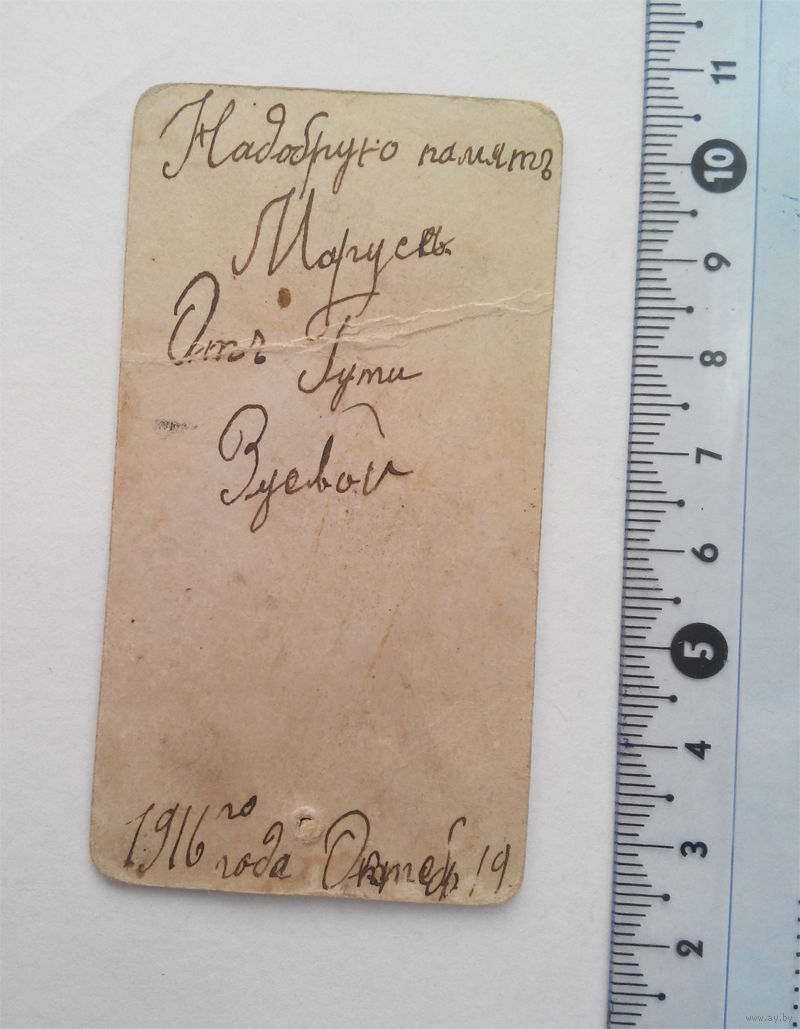 Надобрую помятъ
Марусѣ
Отъ Гути
Зуевой
1916 го
года Октебр 19
11
10
9
8
7
6
5
4
3
2
www.ay.by